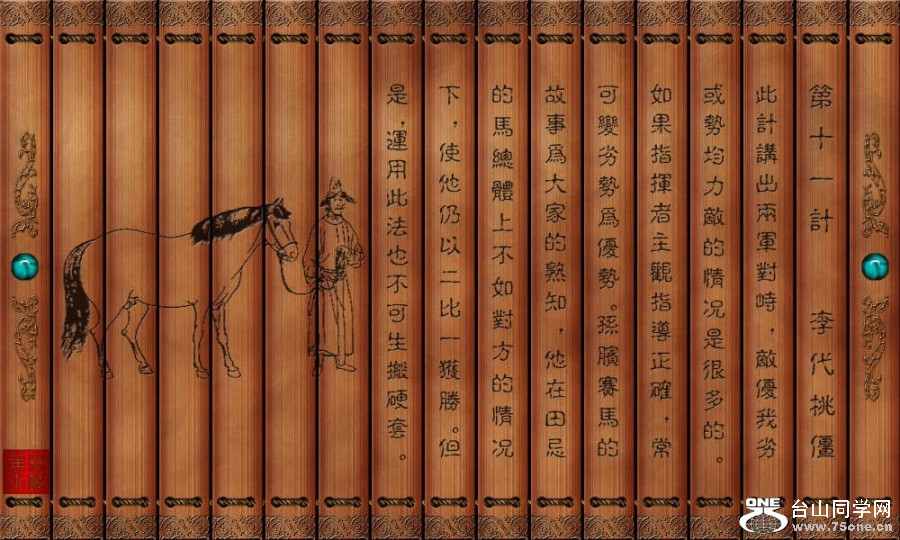 第十一計 李代挑僵
此計講出兩軍對峙，敵優我劣
或勢均力敵的情况是很多的。
如果指揮者主觀指導正確，常
可變劣勢爲優勢。孫臏賽馬的
故事爲大家的熟知，他在田忌
的馬總體上不如對方的情况
下，使他仍以二比一獲勝。但
是，運用此法也不可生搬硬套。
ONE
台山同学网
www.75one.cn